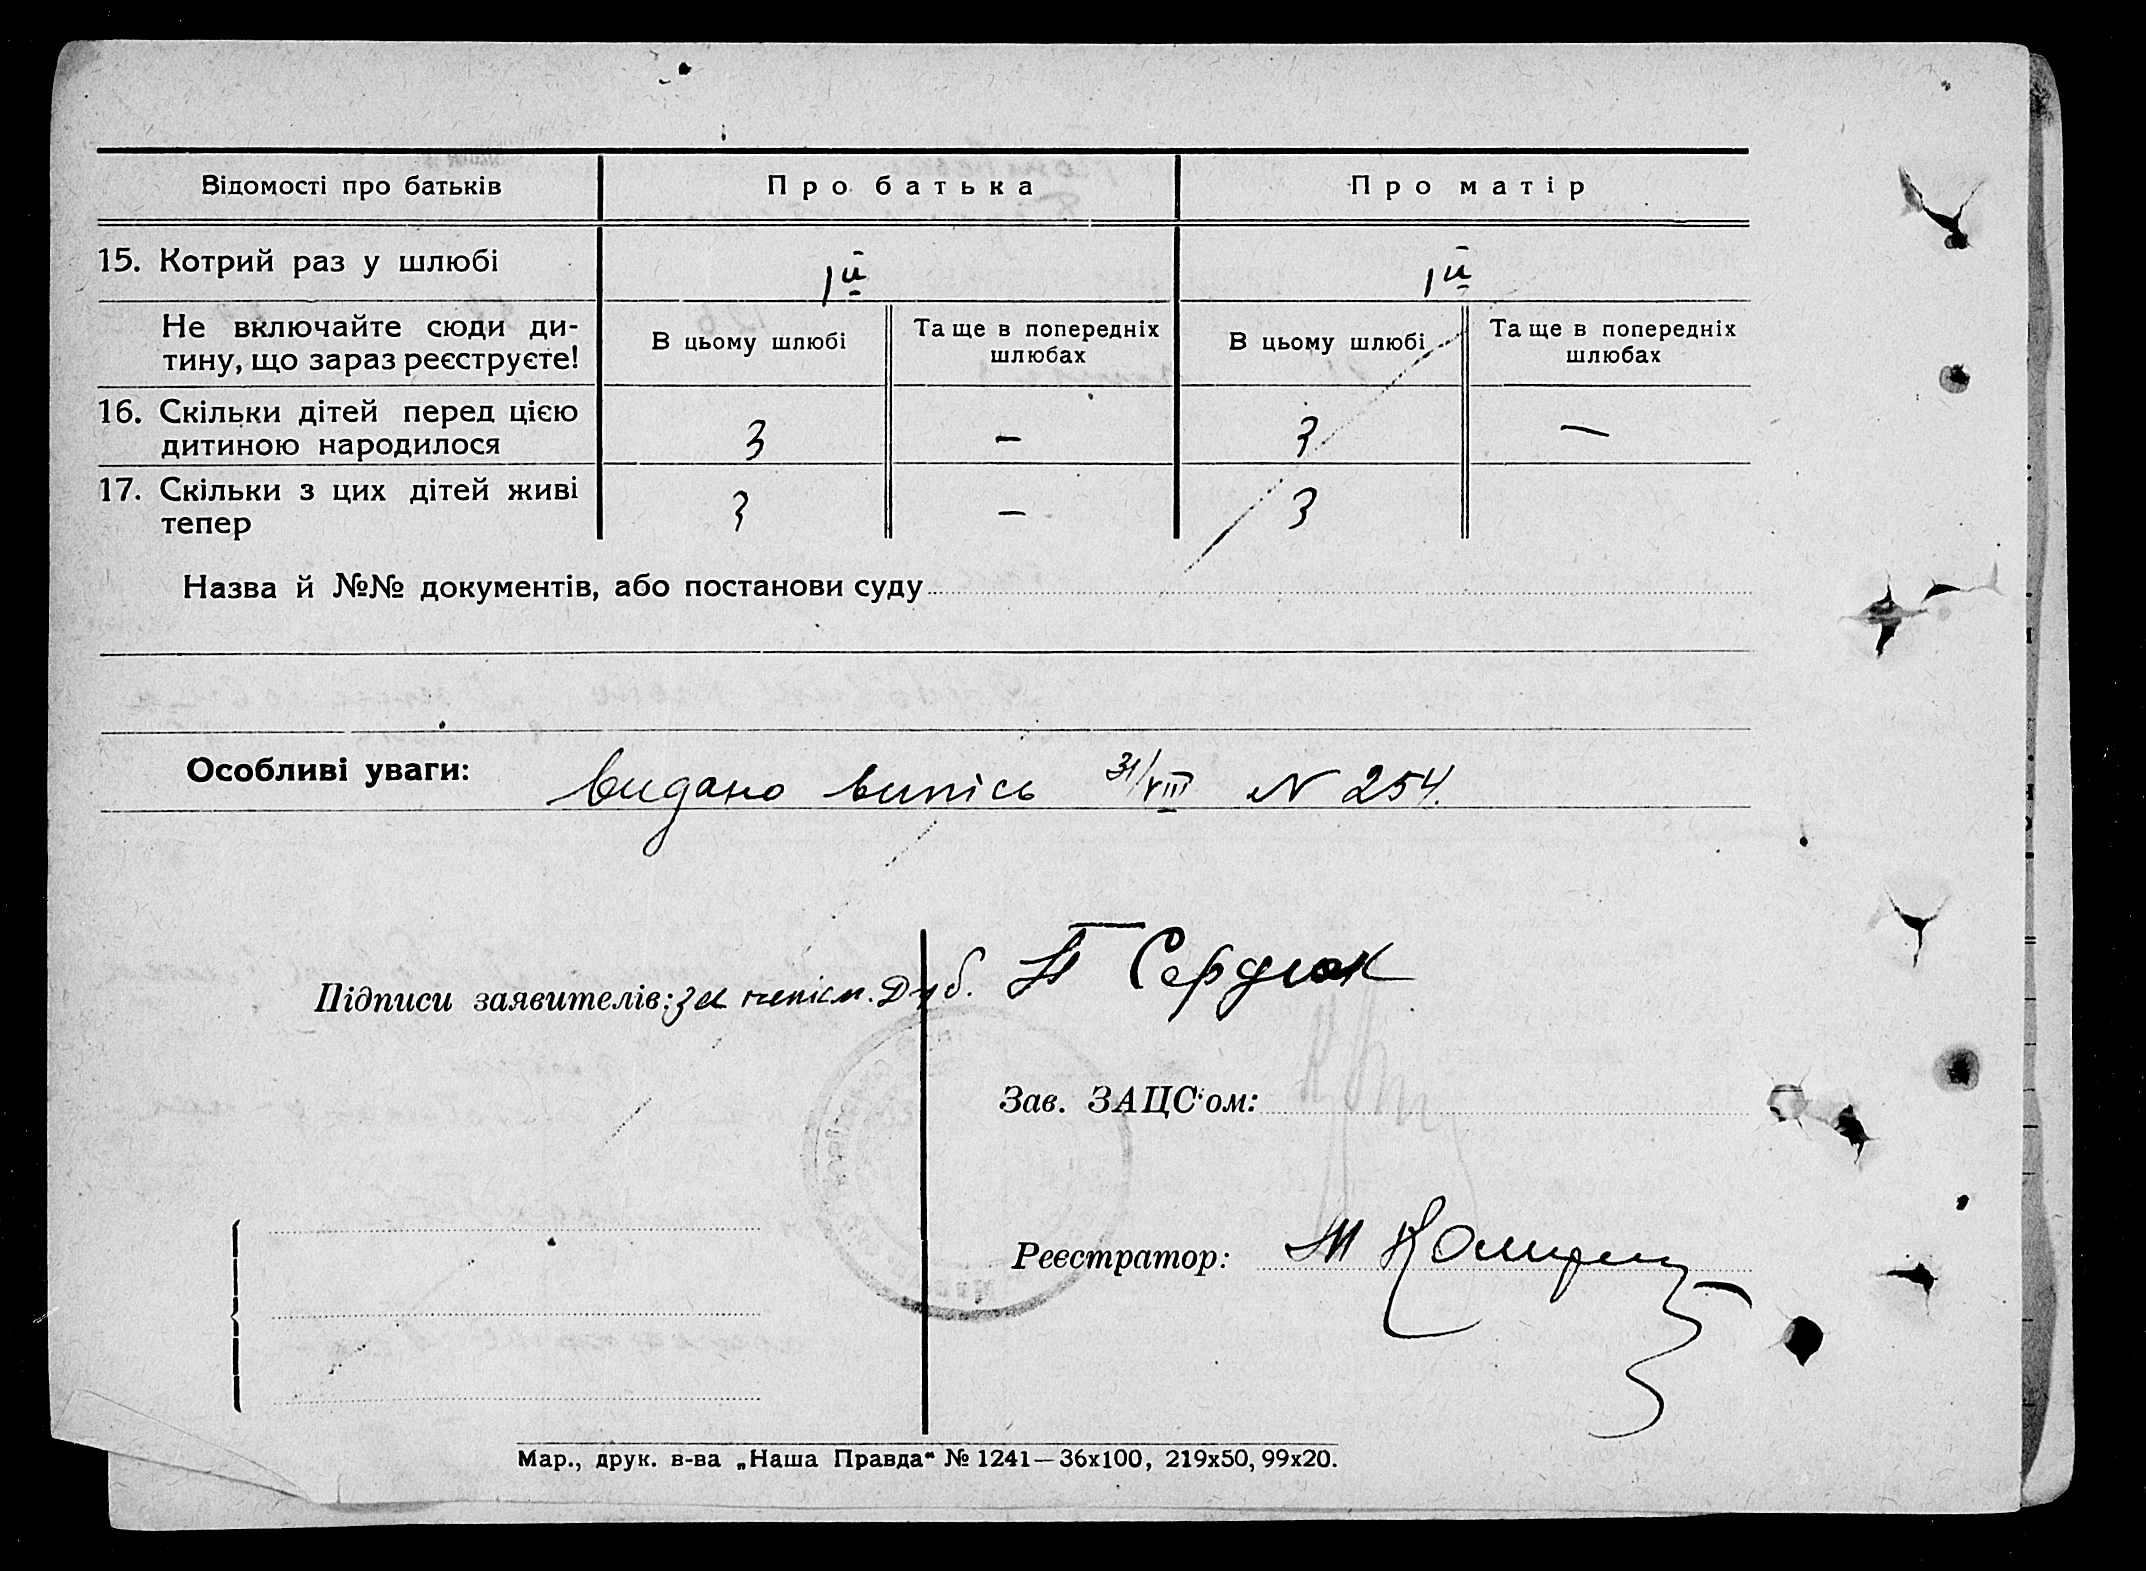 Відомості про батьків Про батька Про матір
15. Котрий раз у шлюбі 1й 1й
Не включайте сюди ди-
тину, що зараз реєструєте!
В цьому шлюбі Та ще в попередніх шлюбах В цьому шлюбі Та ще в попередніх шлюбах
16. Скільки дітей перед цією
дитиною народилося 3 – 3 –
17. Скільки з цих дітей живі
тепер 3 – 3
Назва й №№ документів, або постанови суду
Особливі уваги: видано випісь 31/VIII N 254.
Підписи заявителів: за непісм. П Сердюк
Зав. ЗАЦС'ом:
Реєстратор: М
Мар., друк. в-ва „Наша Правда" № 1241—36х100, 219х50, 99х20.